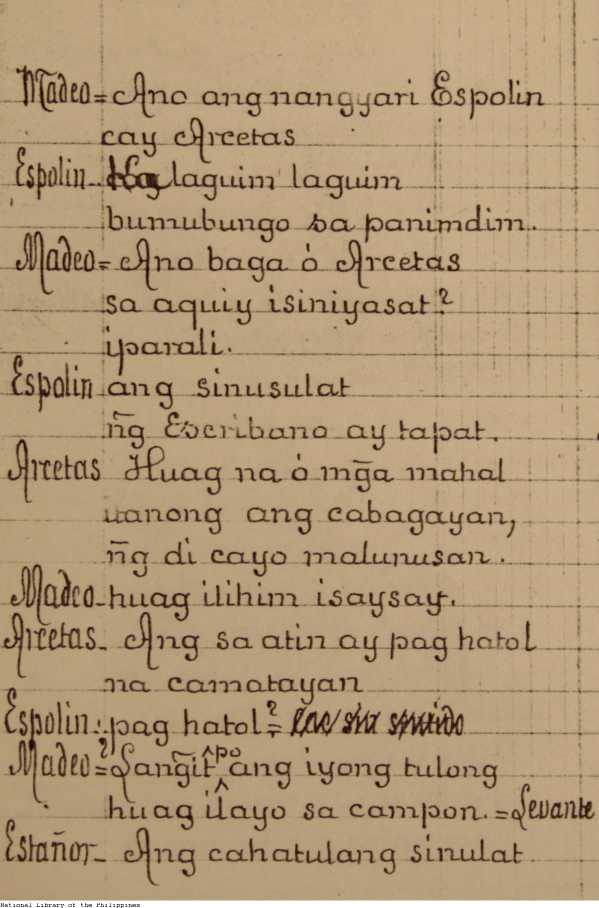 Madeo = Ano ang nangyari Espolin
cay Arcetas
Espolin - laguim laguim
bumubungo sa panimdim.
Madeo = Ano baga ó Arcetas
sa aquiy isiniyasat?
iparali.
Espolin ang sinusulat
ñg Escribano ay tapat.
Arcetas Huag na ó mg̃a mahal
uanong ang cabagayan,
ñg di cayo malunusan.
Madeo - huag ilihim isaysay.
Arcetas - Ang sa atin ay pag hatol
na camatayan
Espolin: pag hatol? =
Madeo = Lang̃it po ang iyong tulong
huag ilayo sa campon. = Levante
Estañor - Ang cahatulang sinulat
National Library of the Philippines